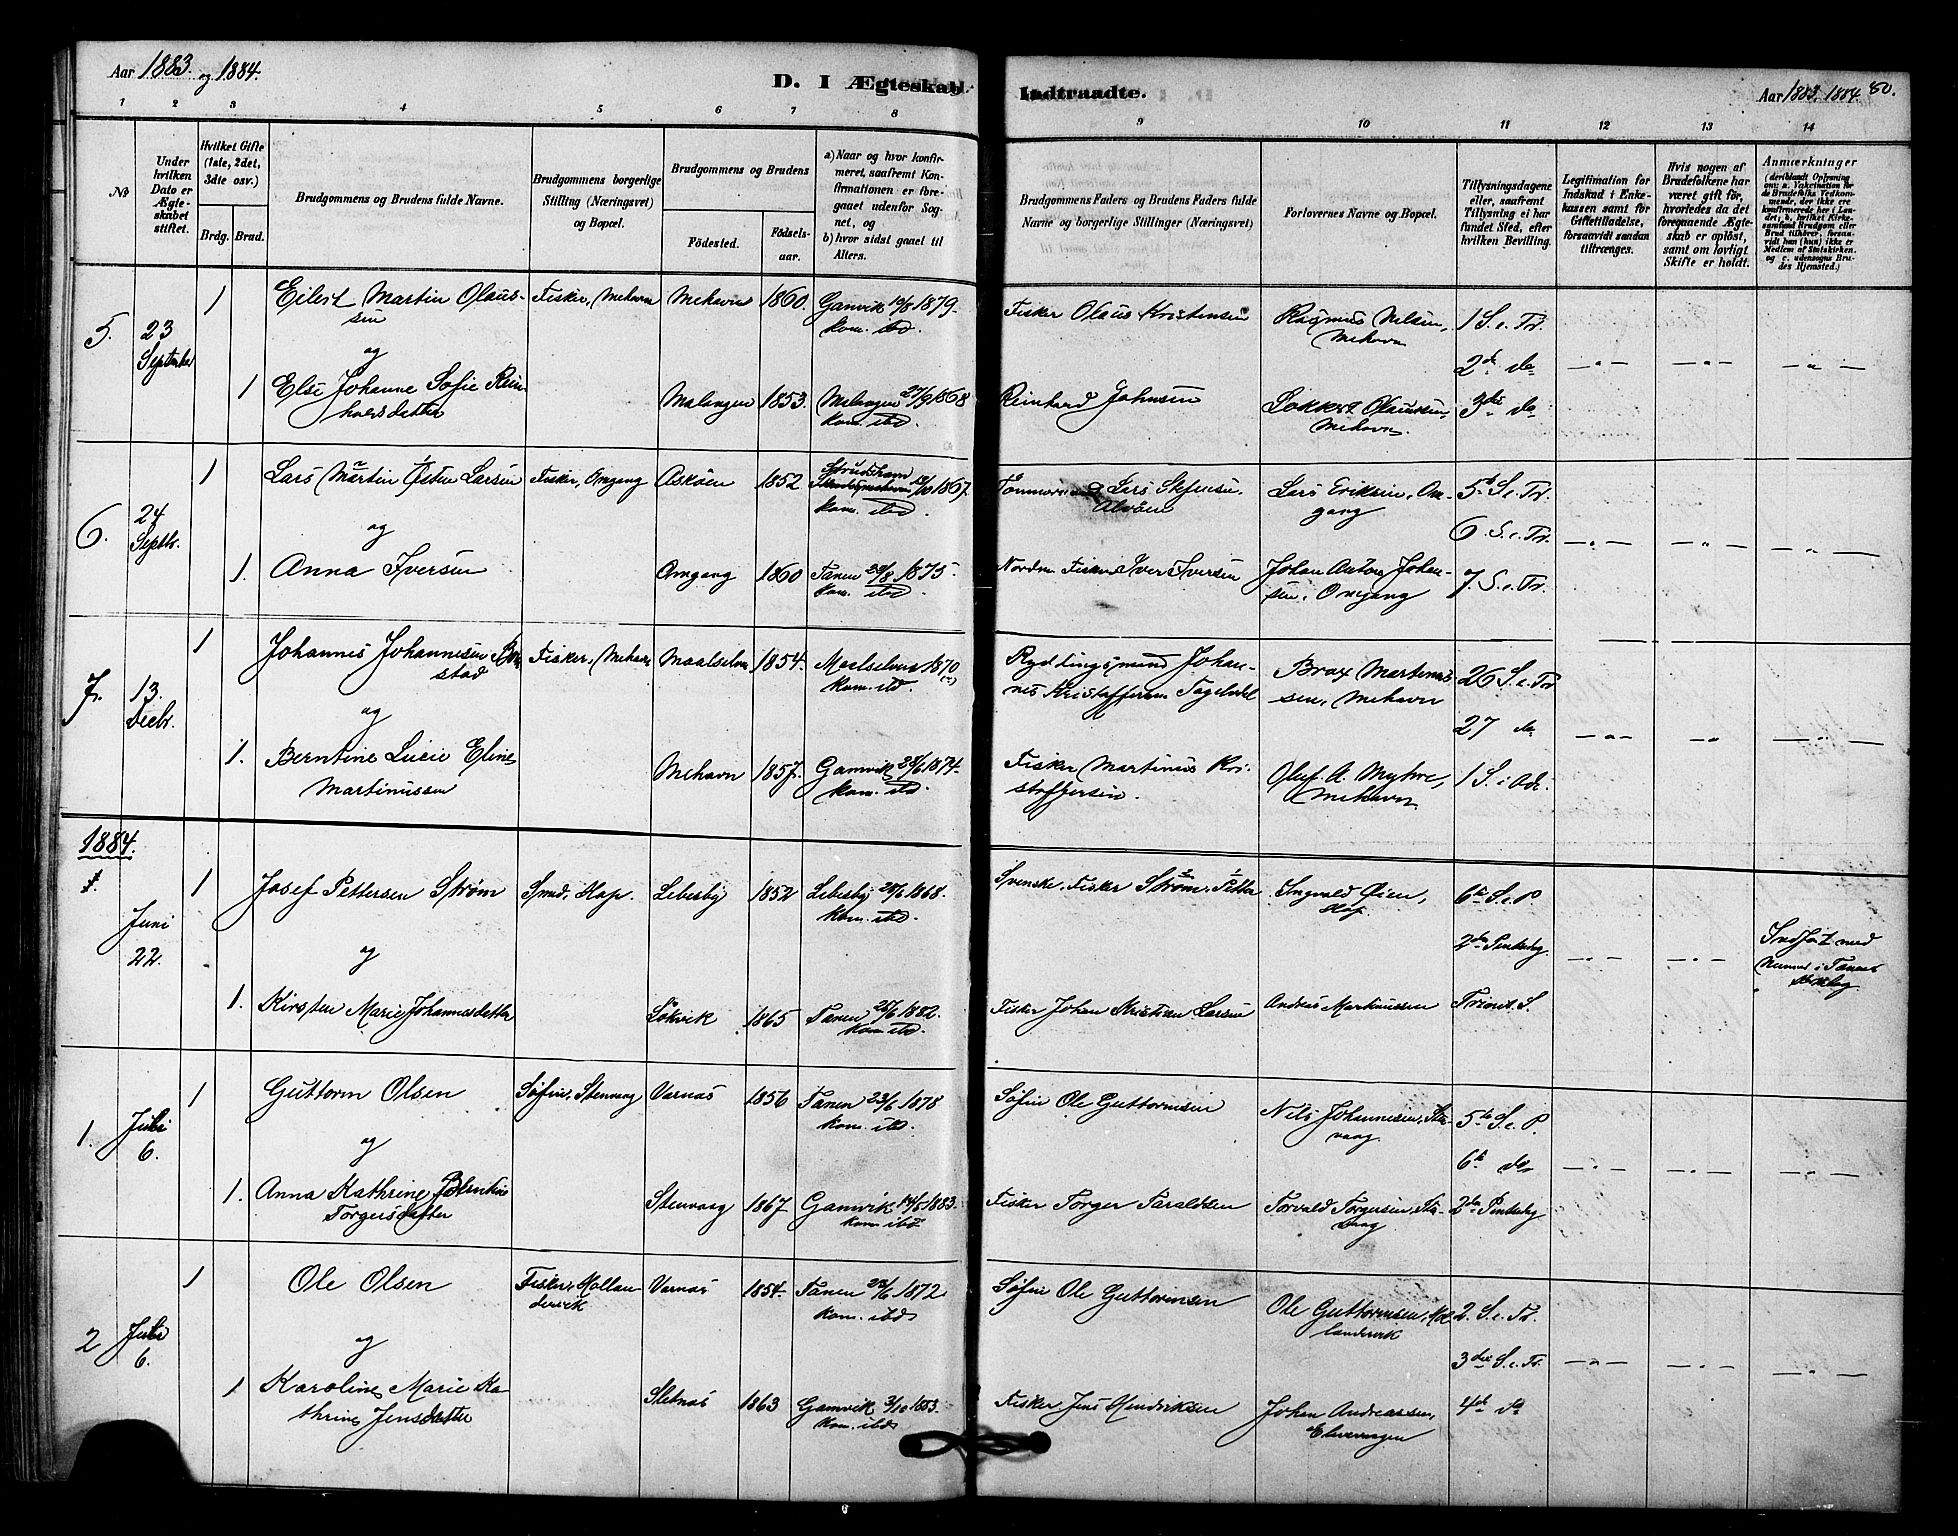 Aar 1883 og 1884.
D. I Ægteskab
Indtraadte.
Aar 1883. 1884. 80.
1 2 3 4 5 6 7 8 9 10 11 12 13 14
No
Under hvilken Dato er Ægteskabet stiftet.
Hvilket Gifte (1ste, 2det, 3die osv.)
Brdg. Brud.
Brudgommens og Brudens fulde Navne.
Brudgommens borgerlige Stilling (Næringsvei) og Bopæl.
Brudgommens og Brudens
Födested.
Födselsaar.
a) Naar og hvor konfirmeret, saafremt Konfirmationen er foregaaet udenfor Sognet, og
b) hvor sidst gaaet til Alters.
Brudgommens Faders og Brudens Faders fulde Navne og borgerlige Stillinger (Næringsvei)
Forlovernes Navne og Bopæl.
Tillysningsdagene eller, saafremt Tillysning ei har fundet Sted, efter hvilken Bevilling.
Legitimation for Indskud i Enkekassen samt for Giftetilladelse, forsaavidt saadan tiltrænges.
Hvis nogen af Brudefolkene har været gift för, hvorledes da det foregaaende Ægteskab er oplöst, samt om lovligt Skifte er holdt.
Anmærkninger
5. 23 September
1 Eilert Martin Olaussen Fisker, Mehavn Mehavn 1860. Gamvik 10/8 1879. kom. ibd. Fisker Olaus Kristensen Rasmus Nilsen, Mehavn 1 S. e. Tr.
og 2de do
1 Else Johanne Sofie Reinholdsdatter Malangen 1853. Malangen 27/9 1868 kom. ibd. Reinhard Johnsen Olausen, Mehavn. 3die do
6. 24 Septbr.
1 Lars Martin Østen Larsen Fisker, Omgang Askøen 1852 1867. kom. ibd. Lars Stefensen. Alvøen Lars Eriksen, Omgang 5te S. e. Tr.
og 6. S. e. Tr.
1. Anna Iversen Omgang 1860 Tanen 29/8 1875. kom. ibd. Nordm Fisker Iver Iversen Johan Anton Johansen, Omgang 7. S. e. Tr.
7. 13. Decbr.
1 Johannes Johannesen Bonstad Fisker, Mehavn Maalselven 1854. Maalselven 1870 kom. ibd. Rydningsmand Johannes Kristoffersen Brox Martinussen, Mehavn 26 S. e. Tr
og 27 do
1. Berntine Lucie Eline Martinussen Mehavn 1857. Gamvik 28/6 1874. kom. ibd. Fisker Martinus Kristoffersen. Oluf A. Myhre, Mehavn 1 S. i Adv.
1884.
1. Juni 22.
1 Josef Pettersen Strøm Smed, Hop. Lebesby 1852 Lebesby 28/6 1868. kom. ibd. Svensk. Fisker Strøm, Petter Ingvald Øien, Hop 6te S. e. P.
og 2den Pintsedag
1. Kirsten Marie Johannesdatter Løkvik 1865 Tanen 25/6 1882. kom. ibd. Fisker Johan Kristian Larsen Andreas Martinussen Trinit. S.
Indført med i Tanens Kirkebog.
1. Juli 6.
1 Guttorm Olsen Søfin, Stenvaag Varnæs 1856 Tanen 23/6 1878 kom. ibd. Søfin Ole Guttormsen Nils Johannesen, Stenvaag 5te S. e. P.
og 6te do
1. Anna Kathrine Berntine Torgersdatter Stenvaag 1867 Gamvik 14/5 1883. kom. ibd. Fisker Torger Taraldsen Torvald Torgersen, Stenvaag 2den Pintsedag
2 Juli 6.
1 Ole Olsen Fisker, Mollandervik Varnæs 1854. Tanen 23/6 1872 kom. ibds Søfin Ole Guttormsen Ole Guttormsen, Mollandervik 2. S. e. Tr.
og 3die S. e. Tr.
1 Karoline Marie Kathrine Jensdatter Sletnæs 1863 Gamvik 3/10 1883. kom. ibds Fisker Jens Hendriksen Johan Andreassen, 4de do